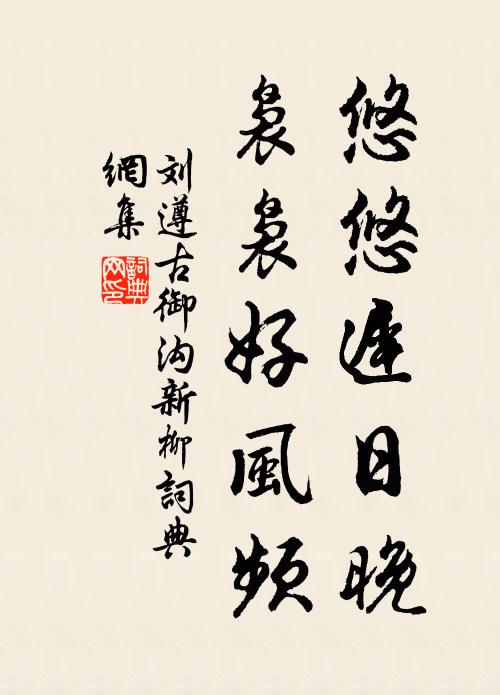 悠悠遲日晚
袅袅好風頻
刘遵古御沟新柳詞典
網集
詞典
网印